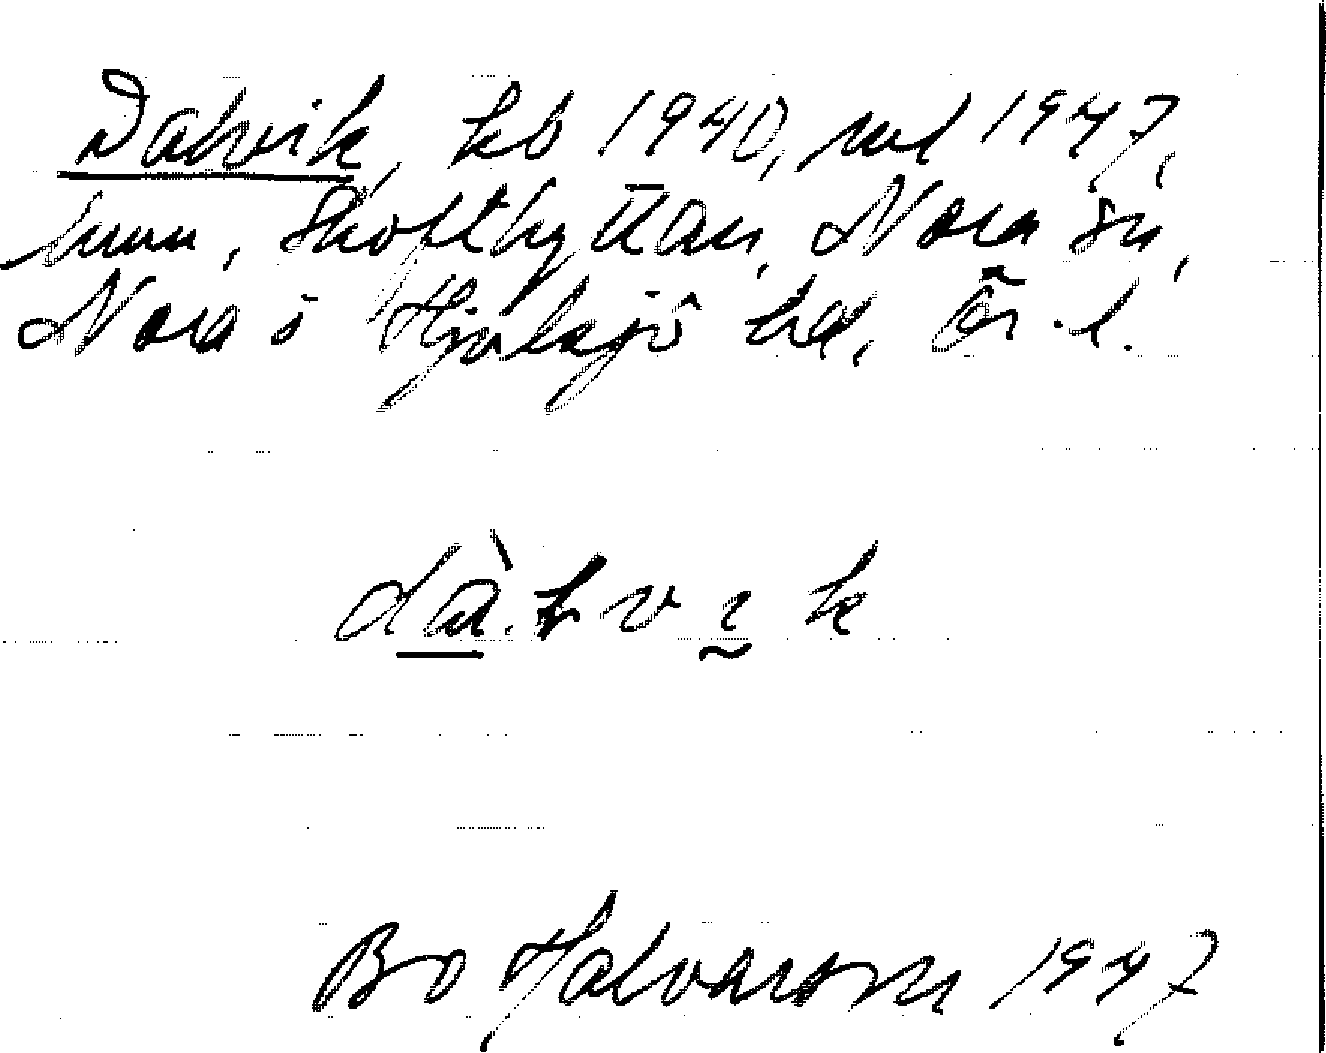 Dalvik, kb 1940, uel 1947,
hmn, Skofthyttan, Nora sn,
Nora o Hjulsjö hd, Ör. l.
dà.l v ı k
Bo Halvarson 1947